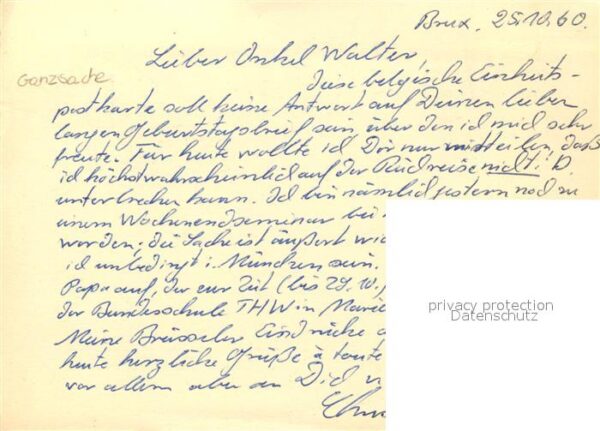 Brux. 25.10.60.
Lieber Onkel Walter
Ganzsache
Diese belgische Einheits-
postkarte soll keine Antwort auf Deinen lieben
langen Geburtstagsbrief sein, über den ich mich sehr
freute. Für heute wollte ich Dir nur mitteilen, daß
ich höchstwahrscheinlich auf der Rückreise nicht i. D.
unterbrechen kann. Ich bin nämlich gestern noch zu
einem Wochenendseminar bei
worden; die Sache ist äußerst
ich unbedingt i. München sein.
Papa auf, der zur Zeit (bis 29.10.
der Bundesschule THW in
Meine Brüsseler Eindrücke
heute herzliche Grüße à toute
vor allem aber an Dich
privacy protection
Datenschutz